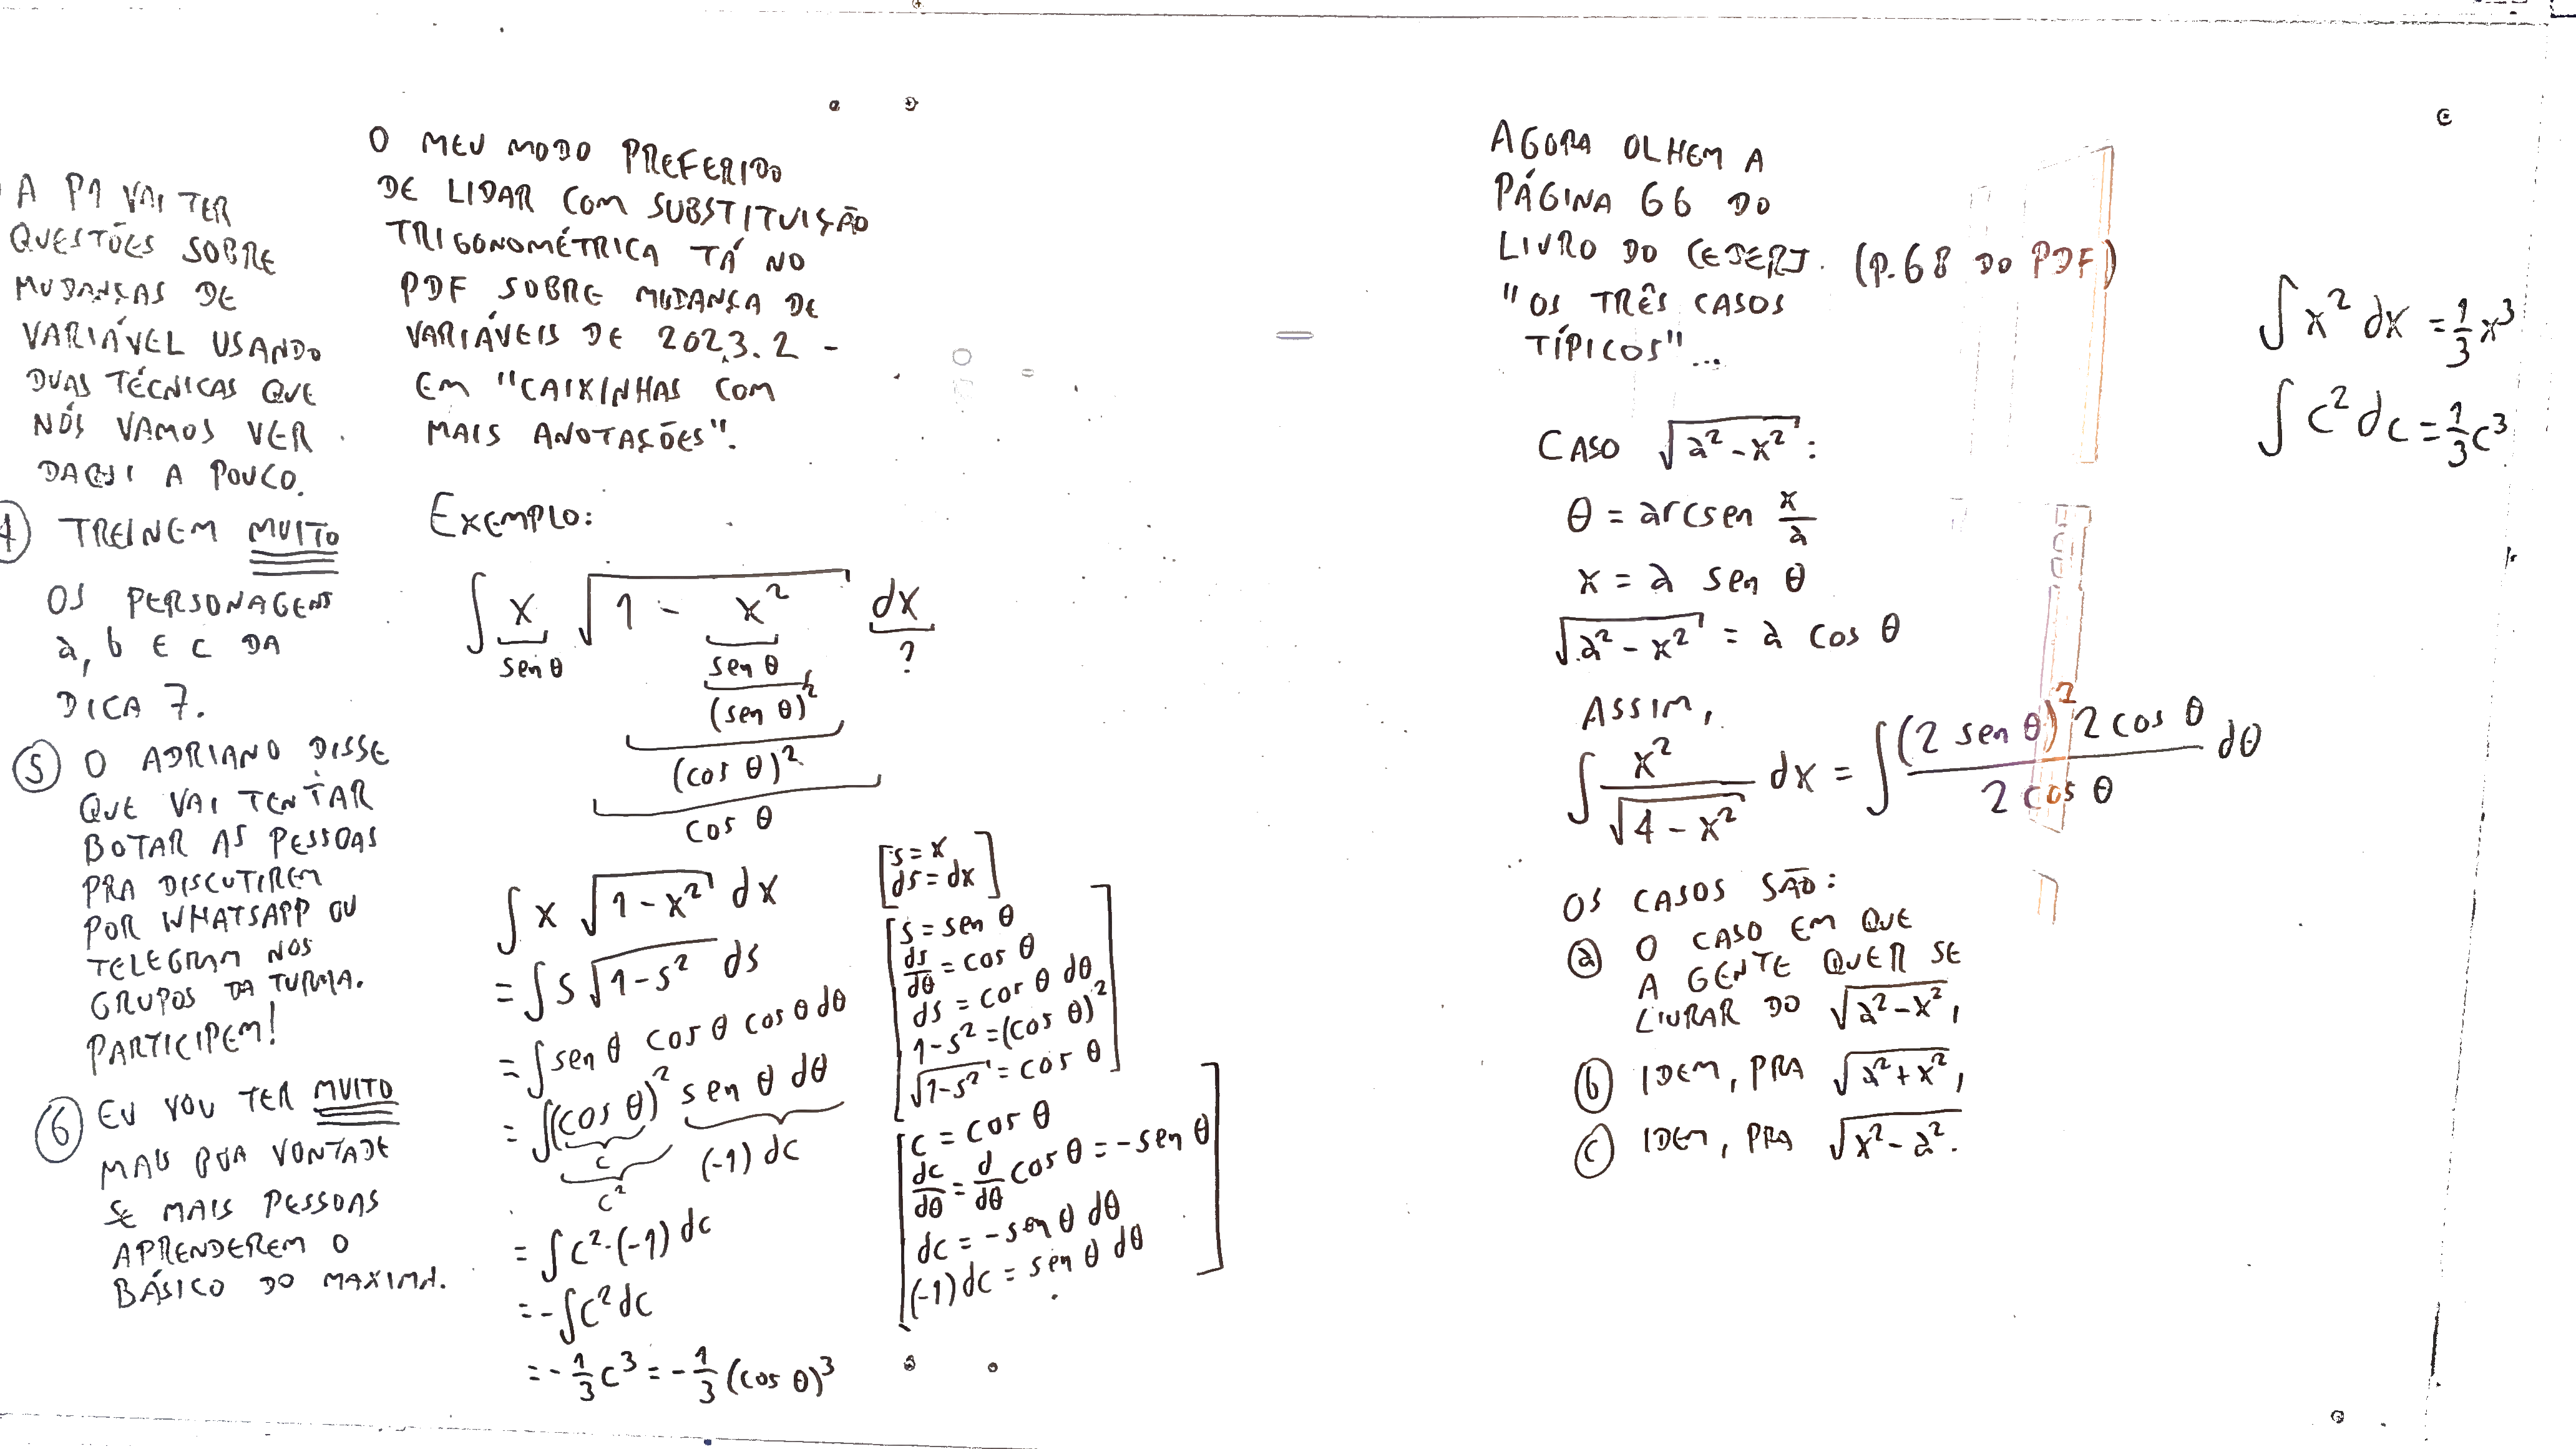 A P1 VAI TER
QUESTÕES SOBRE
MUDANÇAS DE
VARIÁVEL USANDO
DUAS TÉCNICAS QUE
NÓS VAMOS VER
DAQUI A POUCO.
④ TREINEM MUITO
OS PERSONAGENS
a, b E c DA
DICA 7.
⑤ O ADRIANO DISSE
QUE VAI TENTAR
BOTAR AS PESSOAS
PRA DISCUTIREM
POR WHATSAPP OU
TELEGRAM NOS
GRUPOS DA TURMA.
PARTICIPEM!
⑥ EU VOU TER MUITO
MAIS BOA VONTADE
SE MAIS PESSOAS
APRENDEREM O
BÁSICO DO MAXIMA.
O MEU MODO PREFERIDO
DE LIDAR COM SUBSTITUIÇÃO
TRIGONOMÉTRICA TÁ NO
PDF SOBRE MUDANÇA DE
VARIÁVEIS DE 2023.2 -
EM "CAIXINHAS COM
MAIS ANOTAÇÕES".
EXEMPLO:
∫ x √(1 - x²) dx
sen θ sen θ ?
(sen θ)²
(cos θ)²
cos θ
∫ x √(1-x²) dx
= ∫ s √(1-s²) ds
= ∫ sen θ cos θ cos θ dθ
= ∫ (cos θ)² sen θ dθ
c (-1) dc
c²
= ∫ c²·(-1) dc
= -∫ c² dc
= -1/3 c³ = -1/3 (cos θ)³
[s = x
ds = dx]
[s = sen θ
ds/dθ = cos θ
ds = cos θ dθ
1-s² = (cos θ)²
√(1-s²) = cos θ]
[c = cos θ
dc/dθ = d/dθ cos θ = -sen θ
dc = -sen θ dθ
(-1) dc = sen θ dθ]
AGORA OLHEM A
PÁGINA 66 DO
LIVRO DO CEDERJ. (p.68 DO PDF)
"OS TRÊS CASOS
TÍPICOS"...
CASO √(a²-x²):
θ = arcsen x/a
x = a sen θ
√(a²-x²) = a cos θ
ASSIM,
∫ x²/√(4-x²) dx = ∫ (2 sen θ)² 2 cos θ / 2 cos θ dθ
OS CASOS SÃO:
ⓐ O CASO EM QUE
A GENTE QUER SE
LIVRAR DO √(a²-x²),
ⓑ IDEM, PRA √(a²+x²),
ⓒ IDEM, PRA √(x²-a²).
∫ x² dx = 1/3 x³
∫ c² dc = 1/3 c³